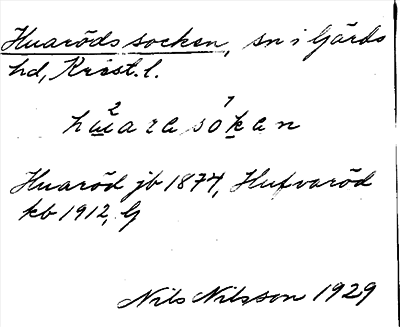 Huaröds socken, sn i Gärds
hd, Krist. l.
2 1
huara sokan
Huaröd jb 1877, Hufvaröd
kb 1912, G
Nils Nilsson 1929